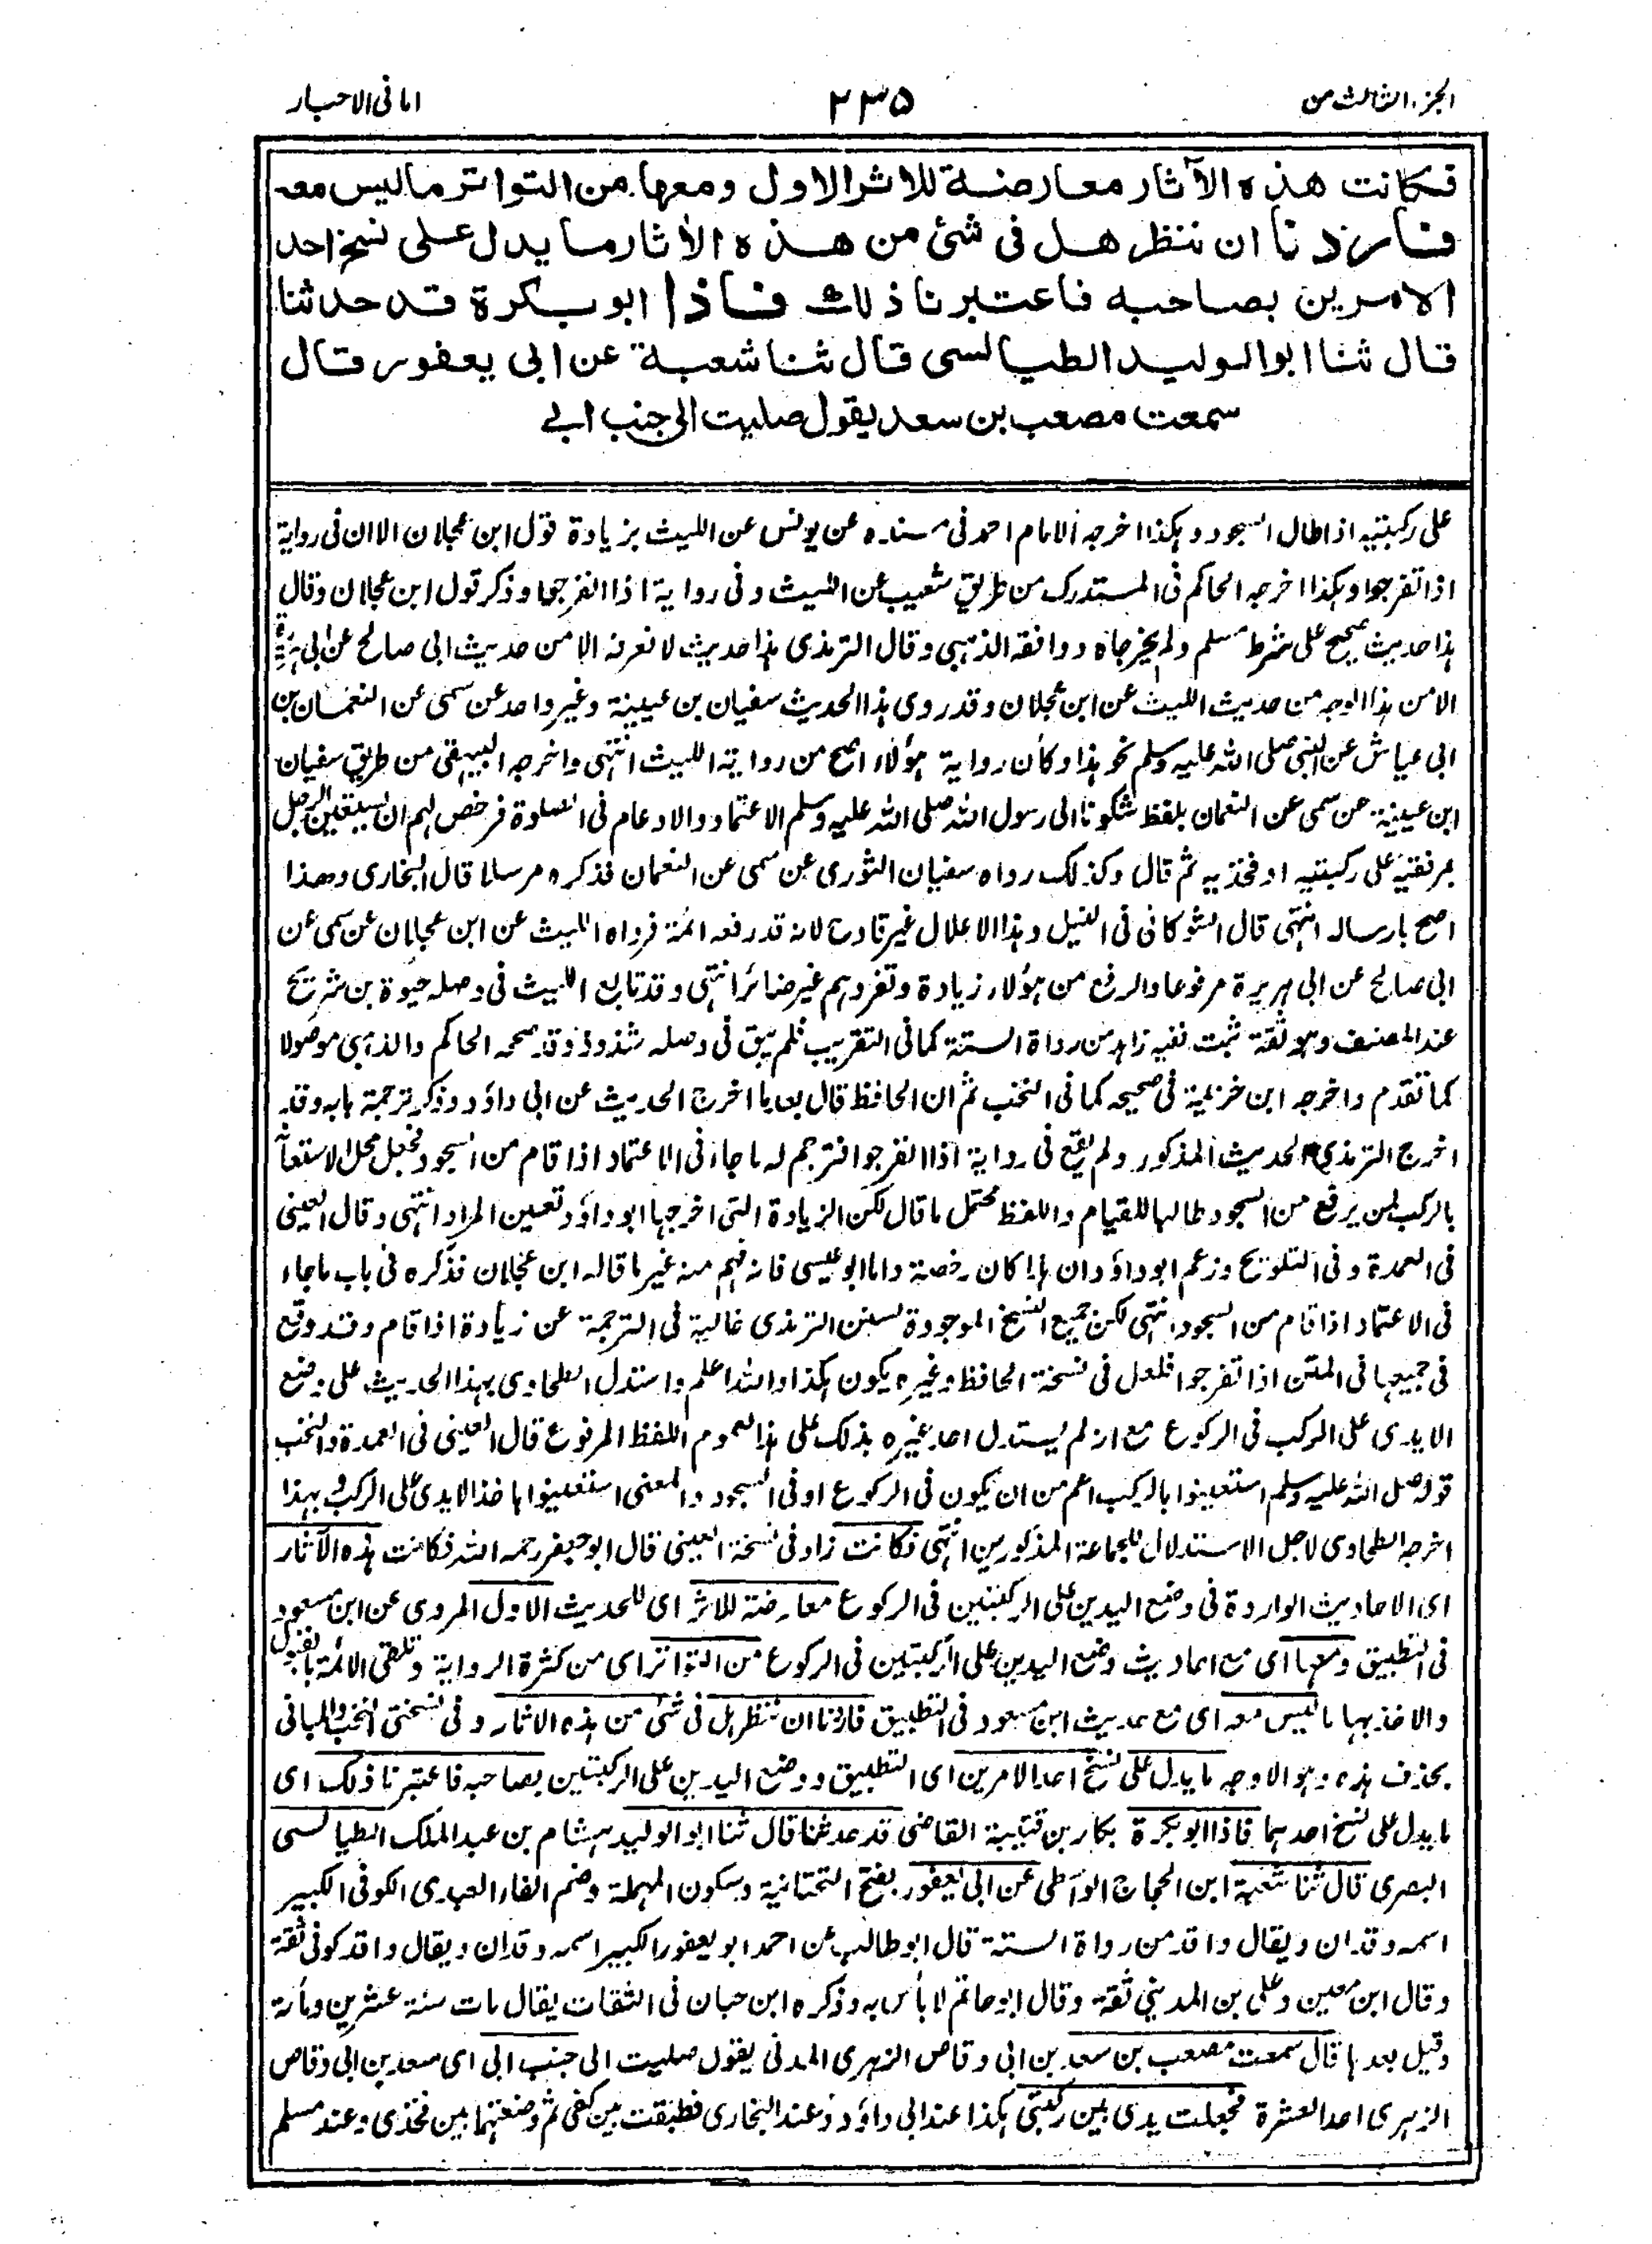 الجزء الثالث من
٢٣٥
امانی الاحبار
فكانت هذه الآثار معارضة للاثر الاول ومعها من التواتر ما ليس معه
فاردنا ان ننظر هل فی شئ من هذه الاٰثار ما يدل علی نسخ احد
الامرين بصاحبه فاعتبرنا ذلك فاذا ابو بكرة قد حدثنا
قال ثنا ابو الوليد الطيالسی قال ثنا شعبة عن ابی يعفور قال
سمعت مصعب بن سعد يقول صليت الی جنب ابی
علی ركبتيه اذا طال السجود وہكذا اخرجه الامام احمد فی مسنده عن يونس عن الليث بزيادة قول ابن عجلان الا ان فی رواية
اذا تفرجوا وہكذا اخرجه الحاكم فی المستدرك من طريق شعيب عن الليث وفی رواية اذا انفرجوا وذكر قول ابن عجلان وقال
ہذا حديث صحيح علی شرط مسلم ولم يخرجاه ووافقه الذہبی وقال الترمذی ہذا حديث لا نعرفه الا من حديث ابی صالح عن ابی ہريرة
الا من ہذا الوجه من حديث الليث عن ابن عجلان وقد روی ہذا الحديث سفيان بن عيينة وغير واحد عن سمی عن النعمان بن
ابی عياش عن النبی صلی الله عليه وسلم نحو ہذا وكأن رواية ہؤلاء اصح من رواية الليث انتہی واخرجه البيہقی من طريق سفيان
ابن عيينة عن سمی عن النعمان بلفظ شكونا الی رسول الله صلی الله عليه وسلم الاعتماد والادعام فی الصلوة فرخص لہم ان يستعين الرجل
بمرفقيه علی ركبتيه او فخذيه ثم قال وكذلك رواه سفيان الثوری عن سمی عن النعمان فذكره مرسلا قال البخاری وهذا
اصح بارساله انتہی قال الشوكانی فی النيل وہذا الاعلال غير قادح لانه قد رفعه ائمة فرواه الليث عن ابن عجلان عن سمی عن
ابی صالح عن ابی ہريرة مرفوعا والرفع من ہؤلاء زيادة وتفردہم غير ضائر انتہی وقد تابع الليث فی وصله حيوة بن شريح
عند المصنف وہو ثقة ثبت فقيه زاہد من رواة الستة كما فی التقريب فلم يبق فی وصله شذوذ وقد صححه الحاكم والذہبی موصولا
كما تقدم واخرجه ابن خزيمة فی صحيحه كما فی النخب ثم ان الحافظ قال بعد ما اخرج الحديث عن ابی داؤد وذكر ترجمة بابه وقد
اخرج الترمذی الحديث المذكور ولم يقع فی رواية اذا انفرجوا فترجم له ما جاء فی الاعتماد اذا قام من السجود فجعل محل الاستعانة
بالركب لمن يرفع من السجود طالبا للقيام واللفظ محتمل ما قال لكن الزيادة التی اخرجہا ابو داؤد تعين المراد انتہی وقال العينی
فی العمدة وفی التلويح وزعم ابو داؤد ان ہذا كان رخصة واما ابو عيسی فانه فہم منه غير ما قاله ابن عجلان فذكره فی باب ما جاء
فی الاعتماد اذا قام من السجود انتہی لكن جميع النسخ الموجودة لسنن الترمذی خالية فی الترجمة عن زيادة اذا قام وقد وقع
فی جميعہا فی المتن اذا تفرجوا فلعل فی نسخة الحافظ وغيره يكون ہكذا والله اعلم واستدل الطحاوی بہذا الحديث علی وضع
الايدی علی الركب فی الركوع مع انه لم يستدل احد غيره بذلك علی ہذا لعموم اللفظ المرفوع قال العينی فی العمدة والنخب
قوله صلی الله عليه وسلم استعينوا بالركب اعم من ان يكون فی الركوع او فی السجود والمعنی استعينوا باخذ الايدی علی الركب وبہذا
اخرجه الطحاوی لاجل الاستدلال للجماعة المذكورين انتہی فكانت زاد فی نسخة العينی قال ابو جعفر رحمه الله فكانت ہذه الآثار
ای الاحاديث الواردة فی وضع اليدين علی الركبتين فی الركوع معارضة للاثر ای للحديث الاول المروی عن ابن مسعود
فی التطبيق ومعہا ای مع احاديث وضع اليدين علی الركبتين فی الركوع من التواتر ای من كثرة الرواية وتلقی الائمة بالقبول
والاخذ بہا ما ليس معه ای مع حديث ابن مسعود فی التطبيق فاردنا ان ننظر ہل فی شئ من ہذه الاثار وفی نسختی النخب والمبانی
بحذف ہذه وہو الاوجه ما يدل علی نسخ احد الامرين ای التطبيق ووضع اليدين علی الركبتين بصاحبه فاعتبرنا ذلك ای
ما يدل علی نسخ احدہما فاذا ابو بكرة بكار بن قتيبة القاضی قد حدثنا قال ثنا ابو الوليد ہشام بن عبد الملك الطيالسی
البصری قال ثنا شعبة ابن الحجاج الواسطی عن ابی يعفور بفتح التحتانية وسكون المہملة وضم الفاء العبدی الكوفی الكبير
اسمه وقدان ويقال واقد من رواة الستة قال ابو طالب عن احمد ابو يعفور الكبير اسمه وقدان ويقال واقد كوفی ثقة
وقال ابن معين وعلی بن المدينی ثقة وقال ابو حاتم لا بأس به وذكره ابن حبان فی الثقات يقال مات سنة عشرين ومأة
وقيل بعدہا قال سمعت مصعب بن سعد بن ابی وقاص الزہری المدنی يقول صليت الی جنب ابی ای سعد بن ابی وقاص
الزہری احد العشرة فجعلت يدی بين ركبتی ہكذا عند ابی داؤد وعند البخاری فطبقت بين كفی ثم وضعتہما بين فخذی وعند مسلم